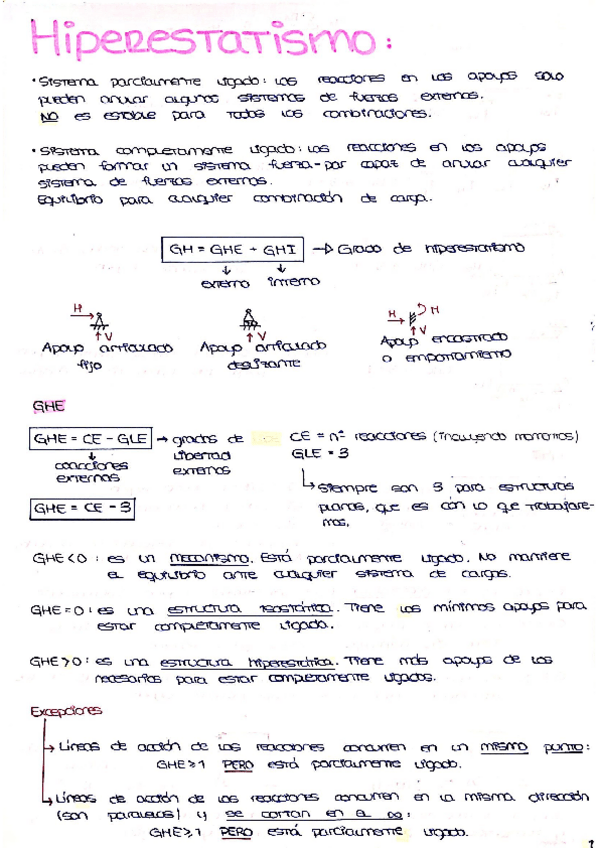 Hiperestatismo:
· Sistema parcialmente ligado: las reacciones en los apoyos solo
pueden anular algunos sistemas de fuerzas externas.
NO es estable para todas las combinaciones.
· Sistema completamente ligado: las reacciones en los apoyos
pueden formar un sistema fuerza-par capaz de anular cualquier
sistema de fuerzas externas.
Equilibrio para cualquier combinación de carga.
GH = GHE + GHI → Grado de hiperestatismo
↓ ↓
externo interno
H V
V
H M V
Apoyo articulado Apoyo articulado Apoyo encastrado
fijo deslizante o empotramiento
GHE
GHE = CE - GLE → grados de libertad externos
↓
coacciones externas
CE = nº reacciones (incluyendo momentos)
GLE = 3
↳ siempre son 3 para estructuras
planas, que es con lo que trabajare-
mos.
GHE = CE - 3
GHE < 0 : es un mecanismo. Está parcialmente ligado. No mantiene
el equilibrio ante cualquier sistema de cargas.
GHE = 0 : es una estructura isostática. Tiene los mínimos apoyos para
estar completamente ligado.
GHE > 0 : es una estructura hiperestática. Tiene más apoyos de los
necesarios para estar completamente ligados.
Excepciones
→ Líneas de acción de las reacciones concurren en un mismo punto:
GHE ≥ 1 PERO está parcialmente ligado.
→ Líneas de acción de las reacciones concurren en la misma dirección
(son paralelas) y se cortan en el ∞:
GHE ≥ 1 PERO está parcialmente ligado.